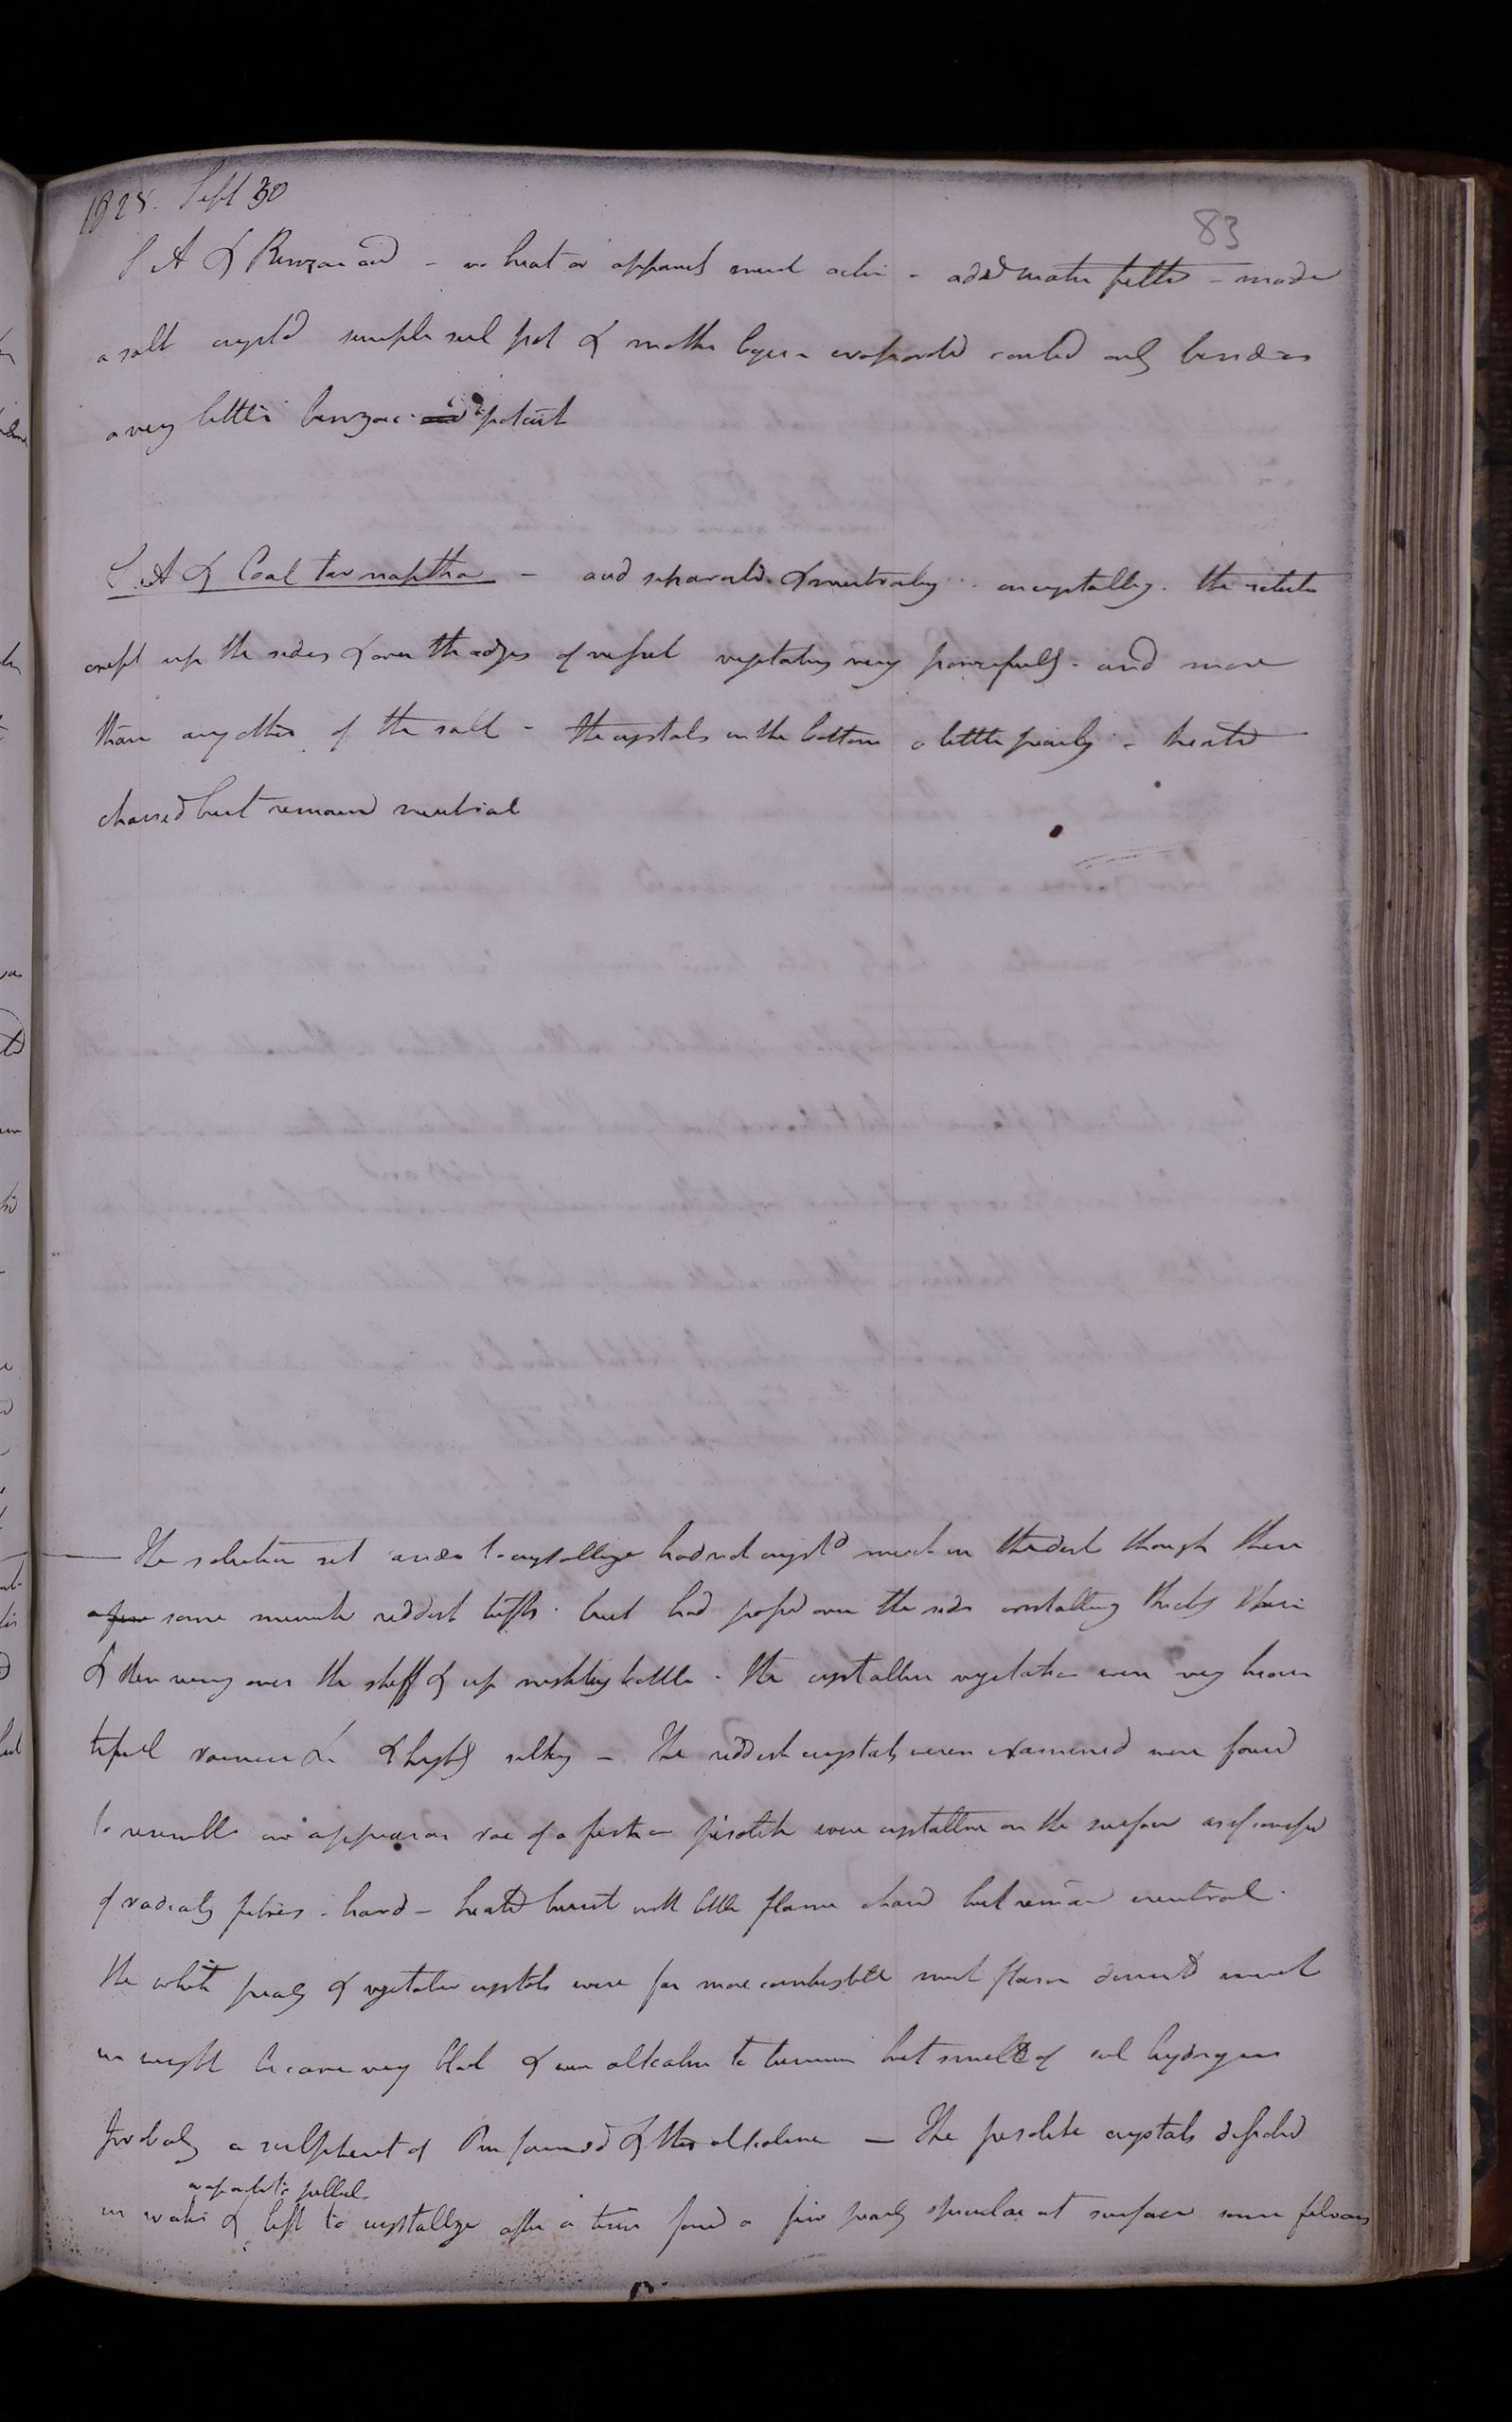 1825. Sept 30
83
S A & Benzoic acid - no heat or apparent much action - added water filtd - made
a salt crystd simple sul pot & mother liquor evaporated contd only besides
a very little benzoic acid potash
S. A & Coal tar naptha - acid separated & neutralized on crystallizg. the solution
crept up the sides & over the edges of vessel vegetating very powerfully - and more
than any other of the salt - the crystals in the bottom a little pearly - heated
charred but remained neutral
The solution set aside to crystallize had not crystd much in the dish though there
a few some minute reddish tufts. but had passed over the side crystallizing thickly there
& then away over the shelf & up neighbouring bottle. The crystalline vegetation were very beau
tiful & highly silky - The reddish crystals when examined were found
to resemble in appearance roe of a fish or pisolite were crystalline on the surface as if composed
of radiatg fibres. hard - heated burnt with little flame chard but remaind neutral.
The white pearly & vegetative crystals were far more combustible much flame dimind much
in weight became very black & were alkaline to turmeric but smelld of sul hydrogen
probably a sulphuret of formed & this alkaline - The pisolite crystals dissolved
evaporated to pellicle
in water & left to crystallize after a time found a few pearly spiculae at surface some fibrous